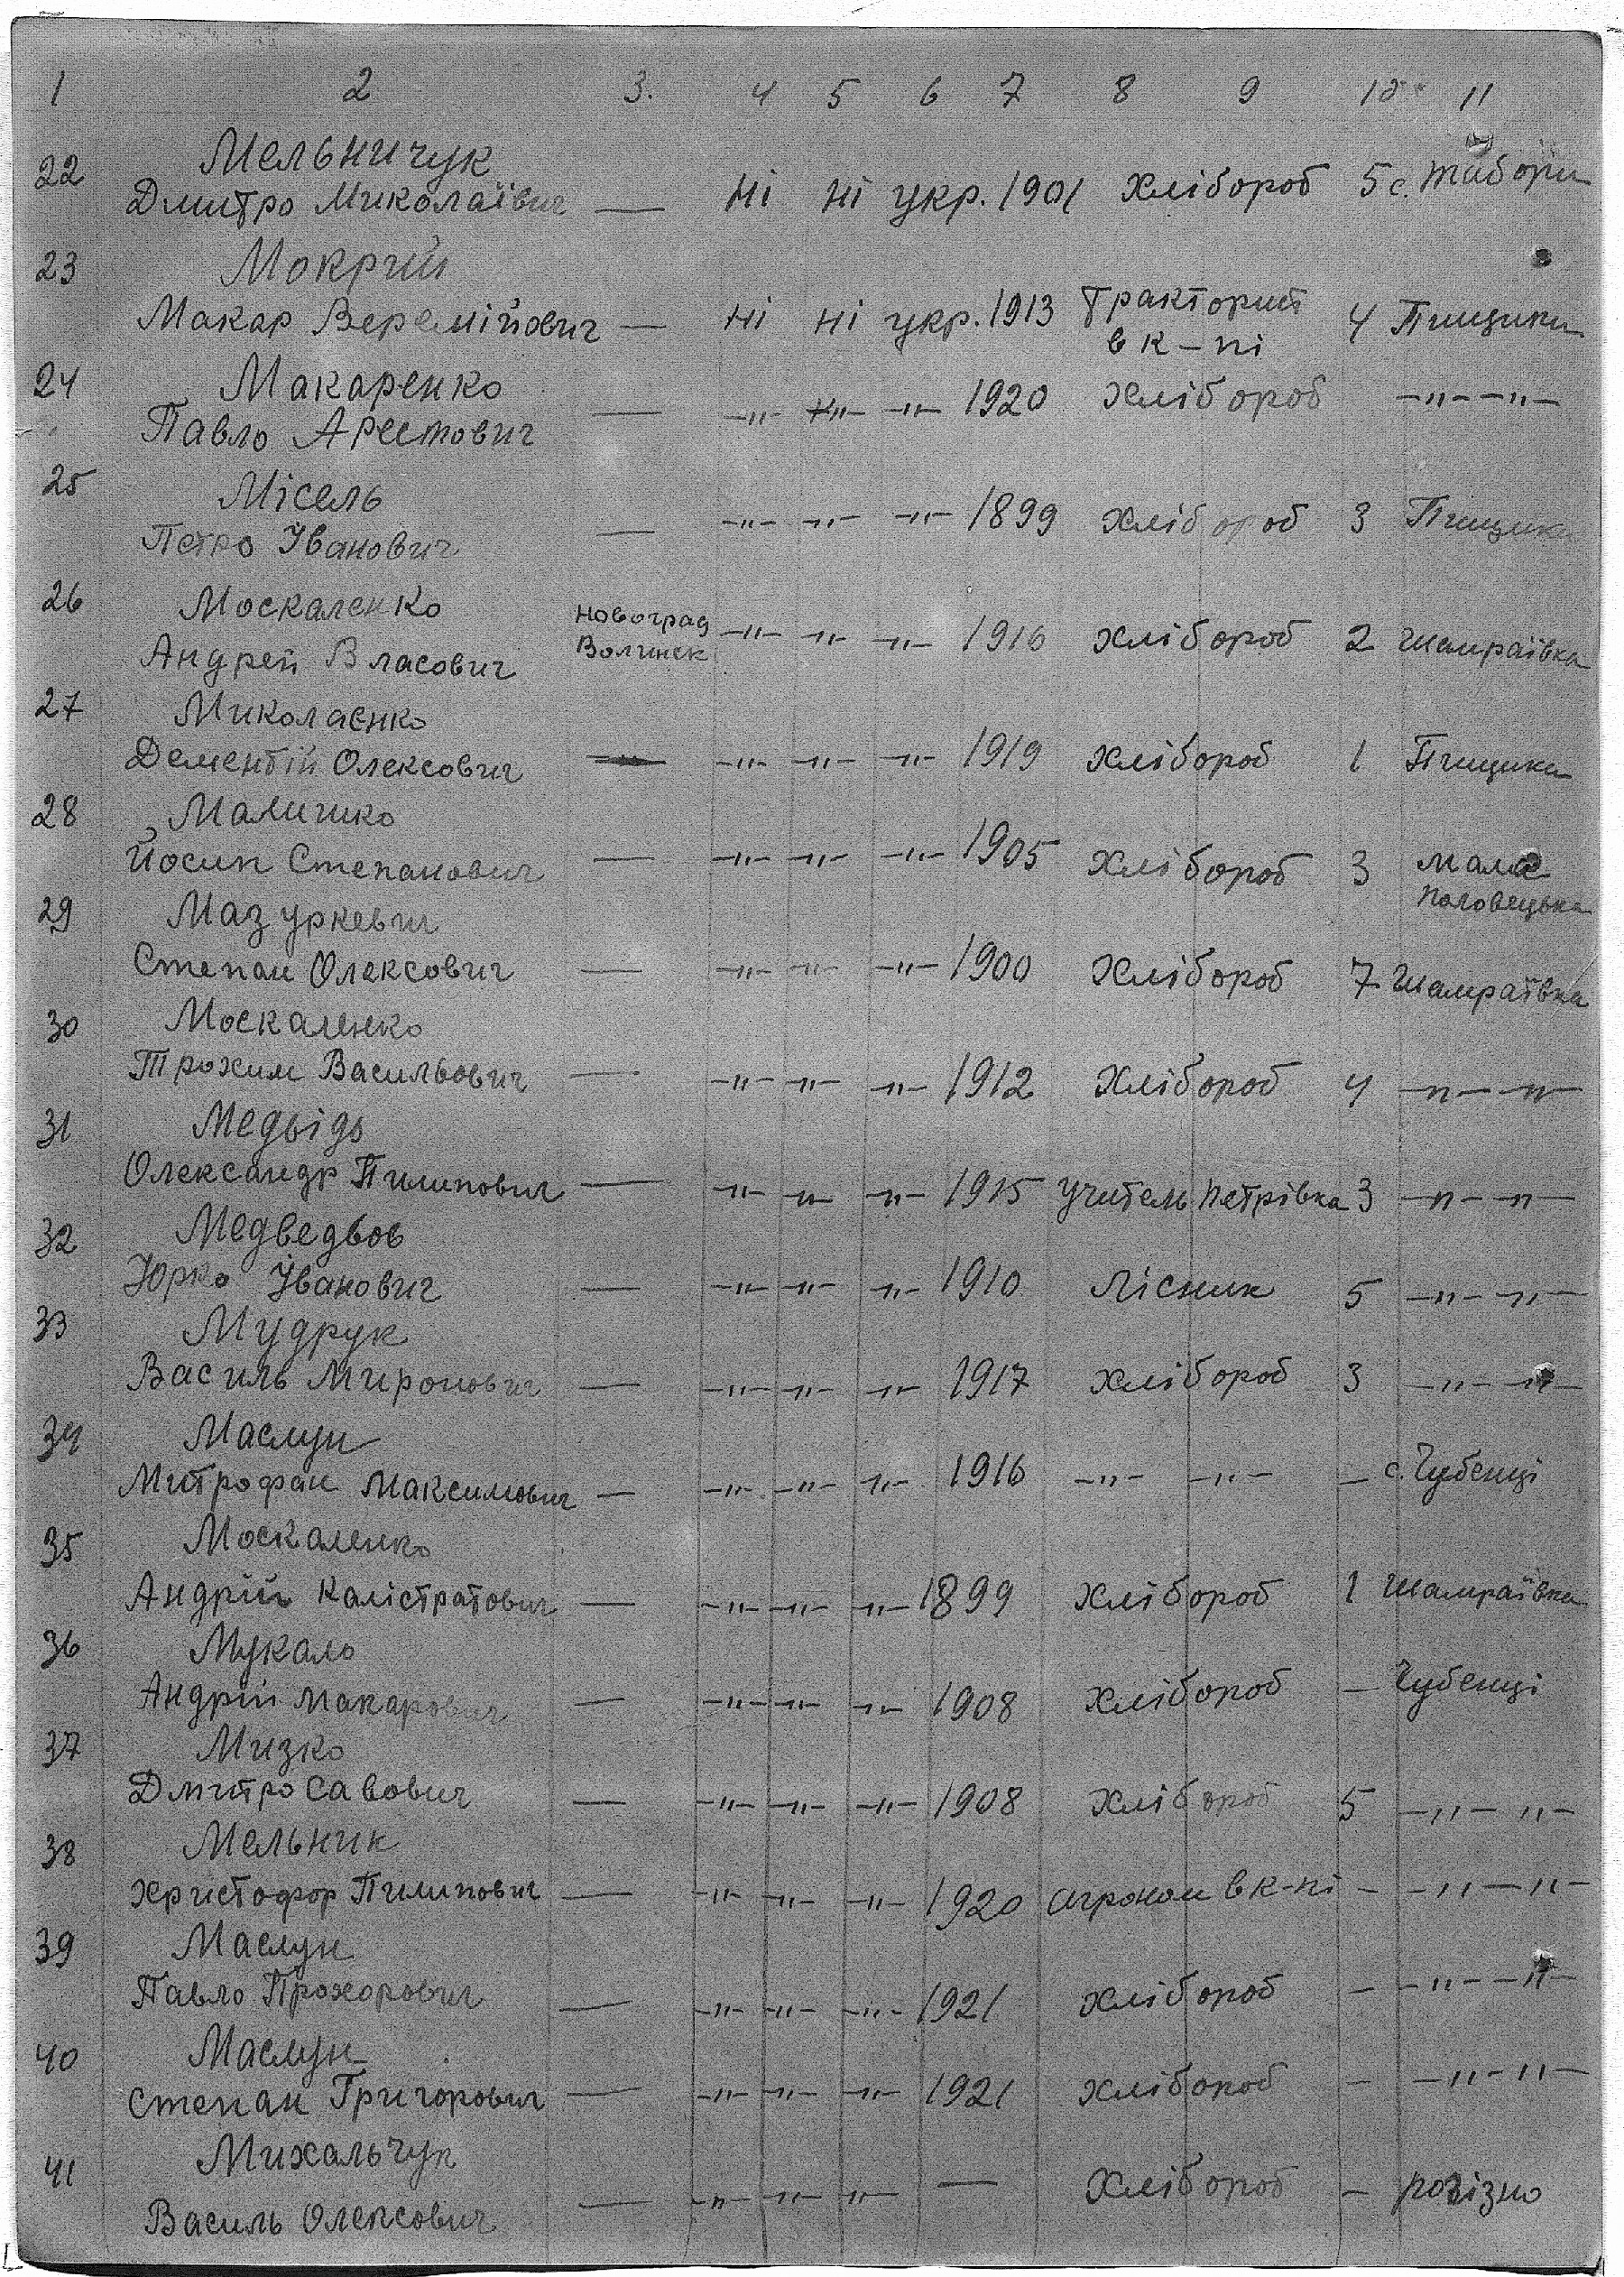 1 2 3. 4 5 6 7 8 9 10 11
22 Мельничук
Дмитро Миколаївич — Ні ні укр. 1901 хлібороб 5 с. Табори
23 Мокрий
Макар Веремійович — Ні ні укр. 1913 Тракторист 4 Пищики
в к-пі
24 Макаренко
Павло Арестович — -"- -"- -"- 1920 хлібороб -"- -"-
25 Місель
Петро Іванович — -"- -"- -"- 1899 хлібороб 3 Пищики
26 Москаленко Новоград
Андрей Власович Волинск -"- -"- -"- 1916 хлібороб 2 Шамраївка
27 Миколаєнко
Дементій Олексович — -"- -"- -"- 1919 хлібороб 1 Пищики
28 Маличко
Йосип Степанович — -"- -"- -"- 1905 хлібороб 3 Мала
Половецька
29 Мазуркевич
Степан Олексович — -"- -"- -"- 1900 хлібороб 7 Шамраївка
30 Москаленко
Трохим Васильович — -"- -"- -"- 1912 хлібороб 4 -"- -"-
31 Медвідь
Олександр Пилипович — -"- -"- -"- 1915 учитель Петрівка 3 -"- -"-
32 Медведьов
Юрко Іванович — -"- -"- -"- 1910 Лісник 5 -"- -"-
33 Мудрук
Василь Миронович — -"- -"- -"- 1917 хлібороб 3 -"- -"-
34 Маслун
Митрофан Максимович — -"- -"- -"- 1916 -"- -"- — с. Чубенці
35 Москаленко
Андрій Калістратович — -"- -"- -"- 1899 хлібороб 1 Шамраївка
36 Мукало
Андрій Макарович — -"- -"- -"- 1908 хлібороб — Чубенці
37 Мизко
Дмитро Савович — -"- -"- -"- 1908 хлібороб 5 -"- -"-
38 Мельник
Христофор Пилипович — -"- -"- -"- 1920 агроном в к-пі — -"- -"-
39 Маслун
Павло Прохорович — -"- -"- -"- 1921 хлібороб — -"- -"-
40 Маслун
Степан Григорович — -"- -"- -"- 1921 хлібороб — -"- -"-
41 Михальчук
Василь Олексович — -"- -"- -"- — хлібороб — розізно